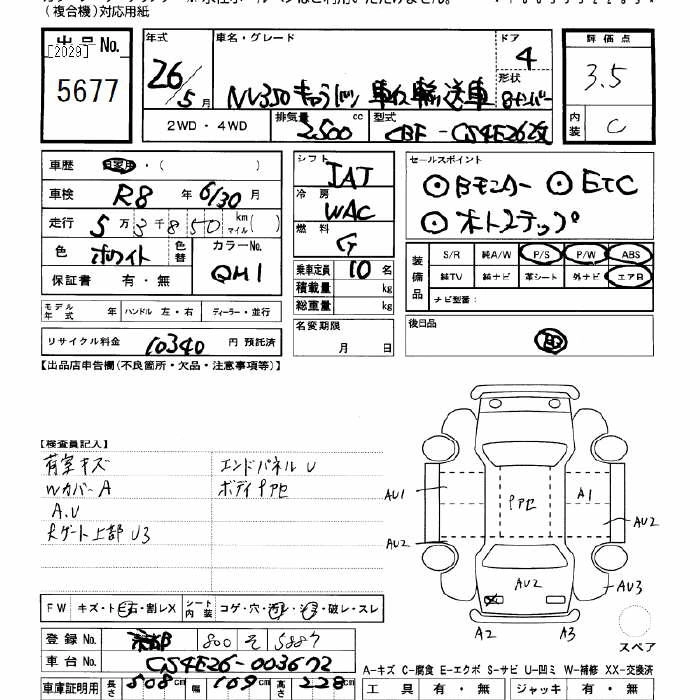 (複合機)対応用紙
出品No.
[2029]
5677
年式
26/5月
車名・グレード
NV350 キャラバン 車イス輸送車
ドア
4
形状
8ナンバー
2WD・4WD
排気量 cc
2500
型式
CBF-CS4E26改
評価点
3.5
内装
C
車歴 自家用・( )
車検 R8年 6/30月
走行 5万3千850 km マイル( )
色 ホワイト 色替
カラーNo.
QM1
保証書 有・無
モデル年式 年 ハンドル 左・右 ディーラー・並行
リサイクル料金 10340 円 預託済
シフト
IAT
冷房
WAC
燃料
G
乗車定員 10 名
積載量 kg
総重量 kg
名変期限
月 日
セールスポイント
⊙Bモニター ⊙ETC
⊙オートステップ
装備品
S/R 純A/W P/S P/W ABS
純TV 純ナビ 革シート 外ナビ エアB
ナビ型番:
後日品
【出品店申告欄(不良箇所・欠品・注意事項等)】
【検査員記入】
荷室キズ
WカバーA
A.U
大ゲート上部 U3
エンドパネル U
ボディサビ
AU1
AU2
A1
AU2
AU2
AU3
A2
A3
スペア
FW キズ・トビ石・割レX
シート内装 コゲ・穴・汚レ・シミ・破レ・スレ
登録No. 800 そ
車台No. CS4E26-003672
車庫証明用 長さ 508cm 幅 169cm 高さ 228cm
A-キズ C-腐食 E-エクボ S-サビ U-凹ミ W-補修 XX-交換済
工具 有・無 ジャッキ 有・無